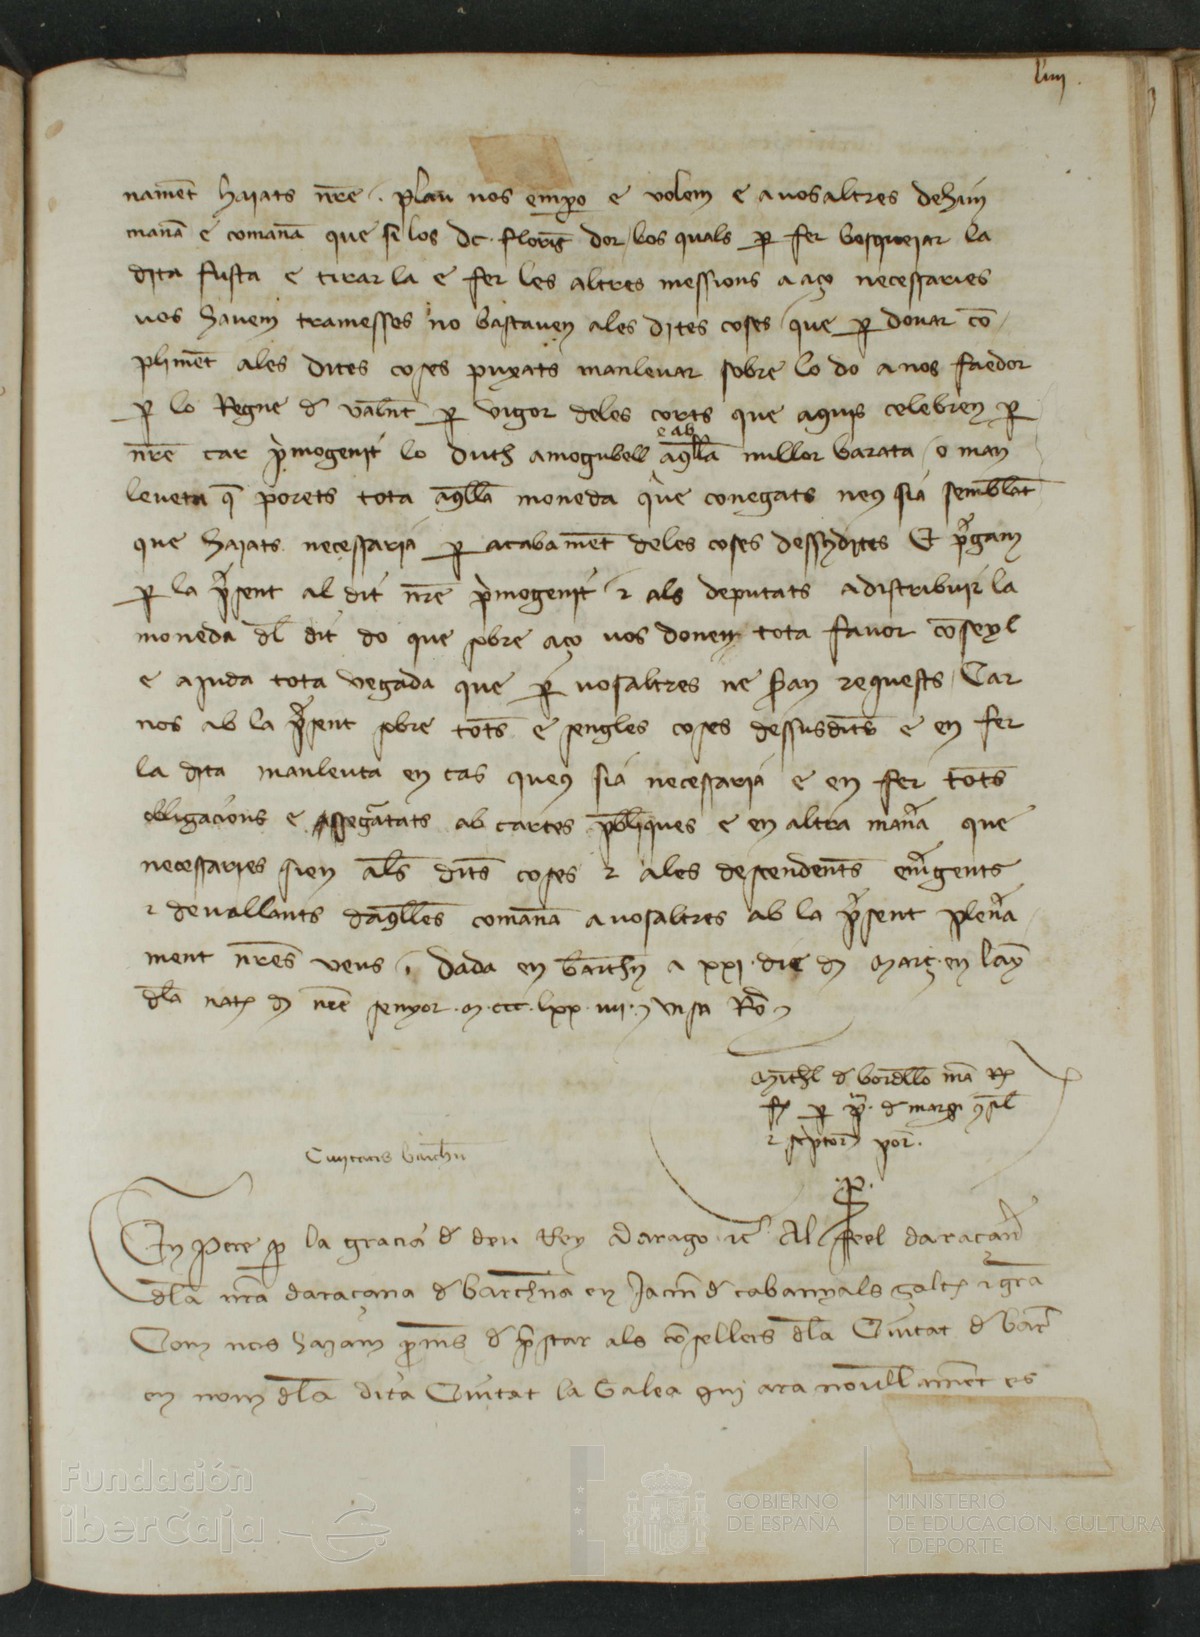 liiij
nament haiats nre . plau nos empero e volem e a vosaltres dehim
manā e comanā que si los DC florīs dor los quals per fer bosqueiar la
dita fusta e tirar la e fer les altres messions a aço necessaries
vos havem tramesses no bastaven a les dites coses que per donar cō
plimēt a les dites coses puxats manlevar sobre lo do a nos faedor
per lo Regne de Valnt per vigor deles corts que aquis celebren per
nre car primogenit lo duch a mogubell e ab aqlla millor barata o man
leuta q porets tota aqlla moneda que conegats neus sia semblāt
que haiats necessaria per acabamēt deles coses dessusdites Et pregam
per la present al dit nre primogenit e als deputats a distribuir la
moneda dl dit do que sobre aço vos donen tota favor conseyl
e ajuda tota vegada que per vosaltres ne seran requests Car
nos ab la present sobre tots e sengles coses dessusdits e en fer
la dita manleuta en cas queus sia necessaria e en fer tots
obligacions e assegūtats ab cartes publiques e en altra manera que
necessaries sien als dits coses e a les descendents emergents
e devallants daqlles comanā a vosaltres ab la present plenera
ment nres veus . dada en Barchn a XXI die de Març en lany
dla nat de nre senyor M CCC LXX IIII visa Ro
Michl de bordello mā Rx
fx per p. de margi csil
e scptorē por.
Civitatis barchn
.P.
En Pere per la gracia de deu Rey Darago ec Al feel daraçaner
dla nra daraçana de barchna en Jacm de cabanyals salt e gra
Com nos haiam proms de prestar als cosellers dla Ciutat de barc
en nom dla dita Ciutat la Galea qui ara novellament es
Fundación
iberCaja
GOBIERNO
DE ESPAÑA
MINISTERIO
DE EDUCACIÓN, CULTURA
Y DEPORTE